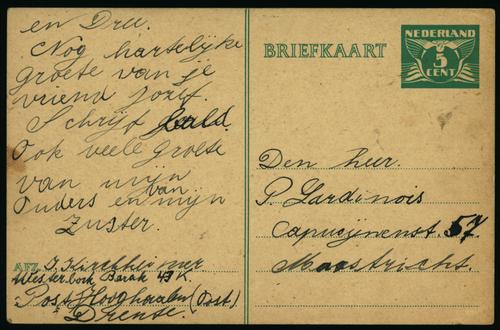 en Dree.
Nog hartelijke
groete van je
vriend Jozef.
Schrijf bald.
Ook veele groete
van mijn
Ouders en van mijn
Zuster.
AFZ. J. Kirchheimer
Westerbork Barak 49 K.
Post Hooghaalen (Oost)
Drente.
BRIEFKAART
NEDERLAND
5
CENT
Den heer.
P. Lardinois
Capucijnenst. 57
Maastricht.